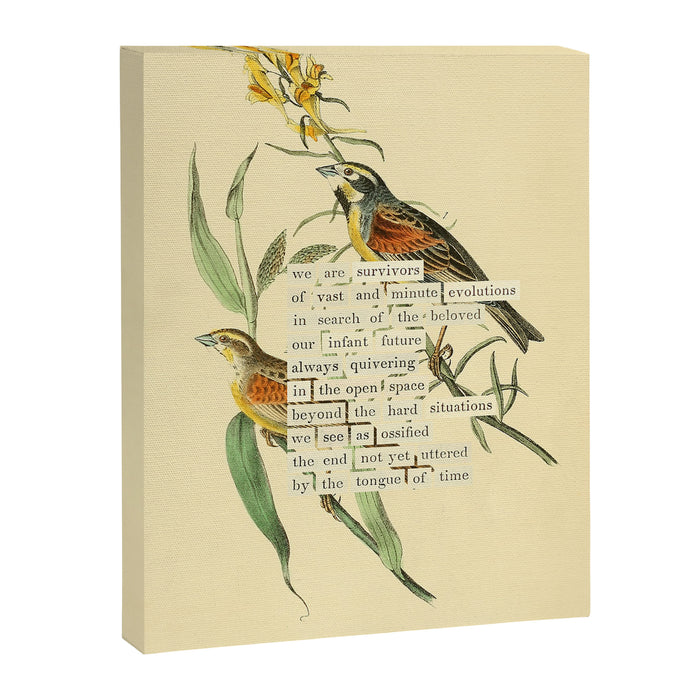 we are survivors
of vast and minute evolutions
in search of the beloved
our infant future
always quivering
in the open space
beyond the hard situations
we see as ossified
the end not yet uttered
by the tongue of time